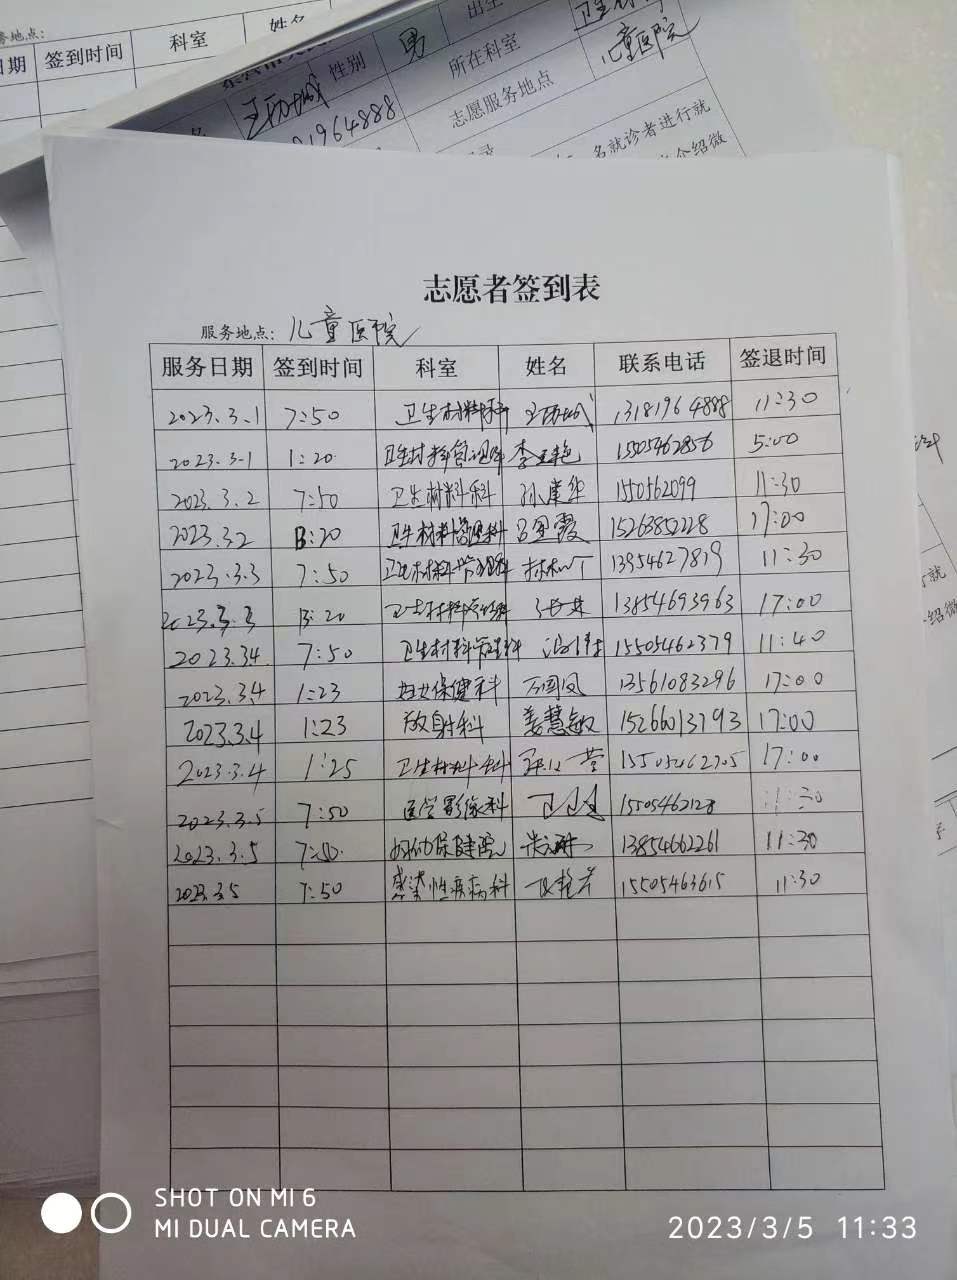 务地点:
日期 签到时间 科室 姓名
性别 男 出生
所在科室
志愿服务地点 儿童医院
名就诊者进行就
介绍微
志愿者签到表
服务地点: 儿童医院
服务日期 签到时间 科室 姓名 联系电话 签退时间
2023.3.1 7:50 卫生材料科 13181964888 11:30
2023.3.1 1:20 卫生材料管理科 15505462856 5:00
2023.3.2 7:50 卫生材料科 孙建华 1550562099 11:30
2023.3.2 13:20 卫生材料管理科 15263852228 17:00
2023.3.3 7:50 卫生材料管理科 13954627819 11:30
2023.3.3 13:20 卫生材料管理科 13854693963 17:00
2023.3.4 7:50 卫生材料管理科 15505462379 11:40
2023.3.4 1:23 妇女保健科 万国凤 13561083296 17:00
2023.3.4 1:23 放射科 姜慧敏 15266013793 17:00
2023.3.4 1:25 卫生材料科 17:00
2023.3.5 7:50 医学影像科 15505462128 11:30
2023.3.5 7:50 妇幼保健院 13854662261 11:30
2023.3.5 7:50 感染性疾病科 15505463615 11:30
SHOT ON MI 6
MI DUAL CAMERA
2023/3/5 11:33